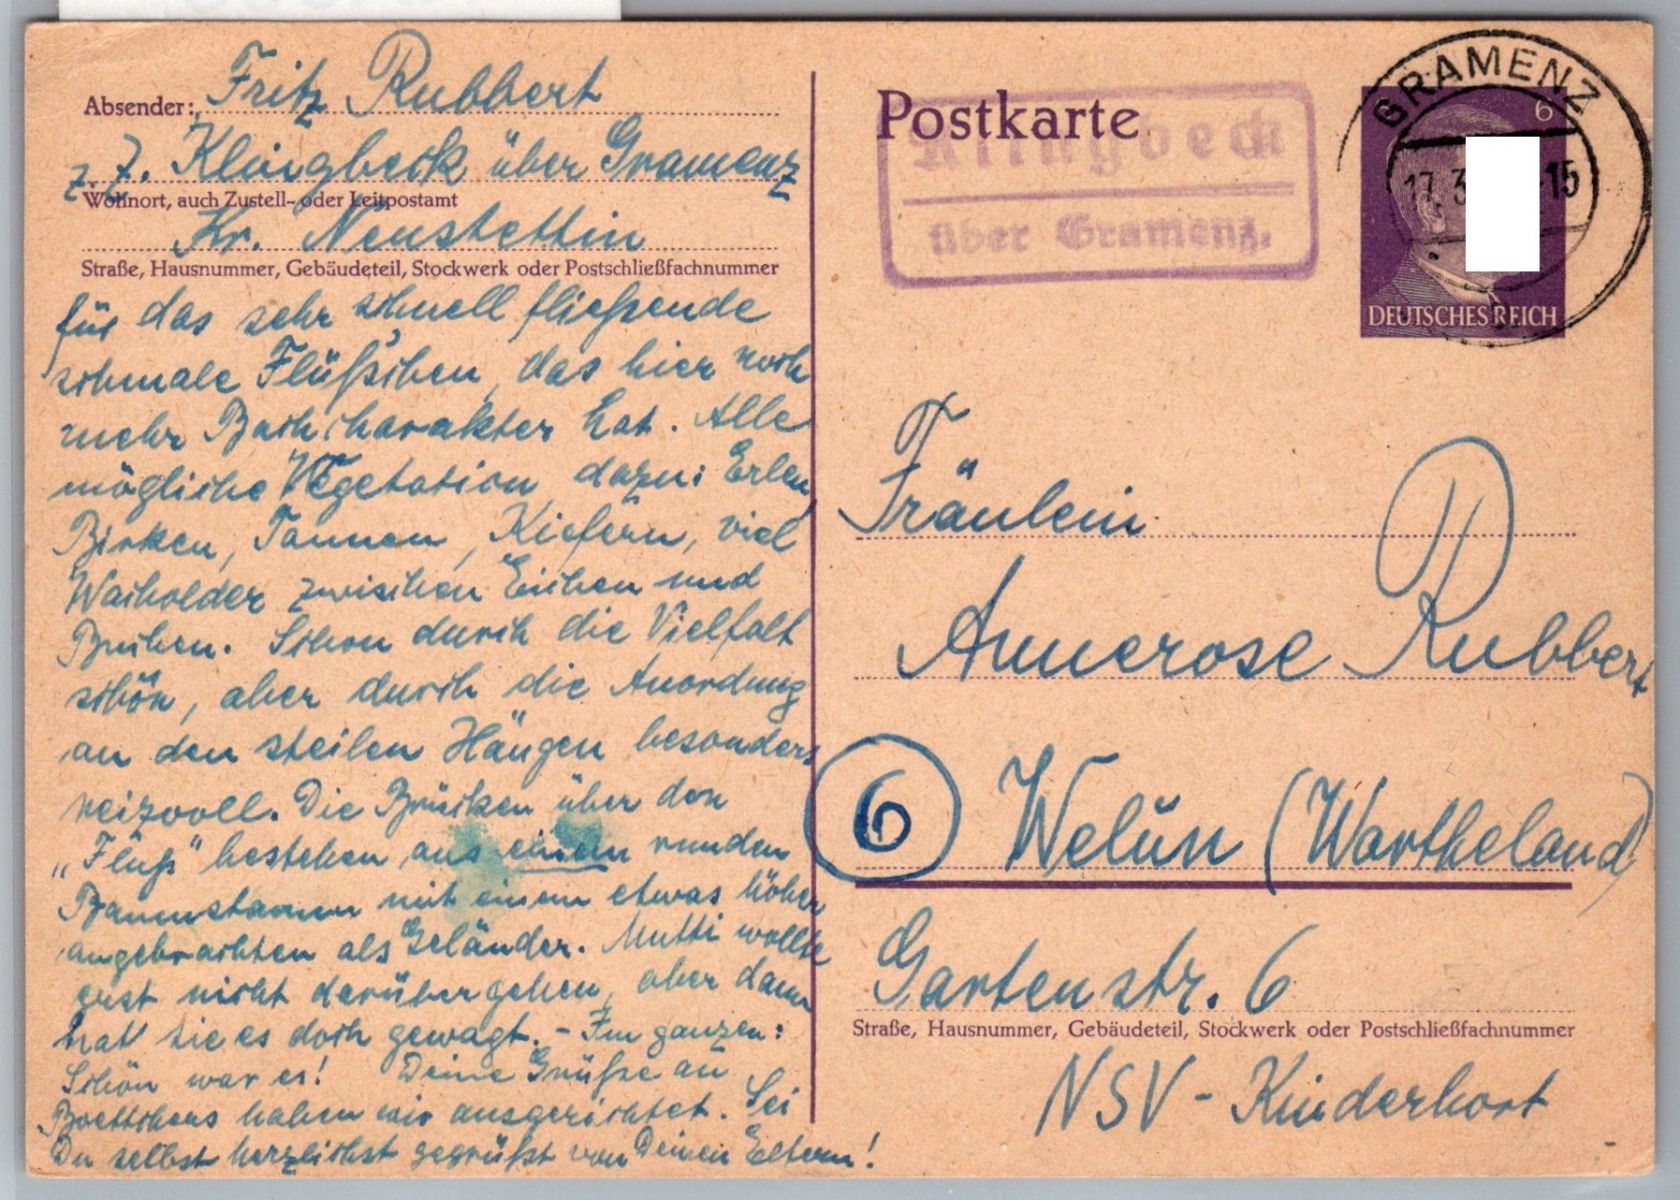 Absender: Fritz Rubbert
z. Z. Klingbeck über Gramenz
Wohnort, auch Zustell- oder Leitpostamt
Kr. Neustettin
Straße, Hausnummer, Gebäudeteil, Stockwerk oder Postschließfachnummer
für das sehr schnell fließende
schmale Flüßchen, das hier noch
mehr Bachcharakter hat. Alle
mögliche Vegetation dazu: Erlen,
Birken, Tannen, Kiefern, viel
Wacholder zwischen Eichen und
Buchen. Schon durch die Vielfalt
schön, aber durch die Anordnung
an den steilen Hängen besonders
reizvoll. Die Brücken über den
„Fluß" bestehen aus einem runden
Baumstamm mit einem etwas höher
angebrachten als Geländer. Mutti wollte
erst nicht darüber gehen, aber dann
hat sie es doch gewagt. - Im ganzen:
Schön war es! Deine Grüße an
Boettchers haben wir ausgerichtet. Sei
Du selbst herzlichst gegrüßt von Deinen Eltern!
Postkarte
Klingbeck
über Gramenz.
GRAMENZ
17.3
-15
6
DEUTSCHES REICH
Fräulein
Annerose Rubbert
6 Welün (Wartheland)
Gartenstr. 6
Straße, Hausnummer, Gebäudeteil, Stockwerk oder Postschließfachnummer
NSV-Kinderhort